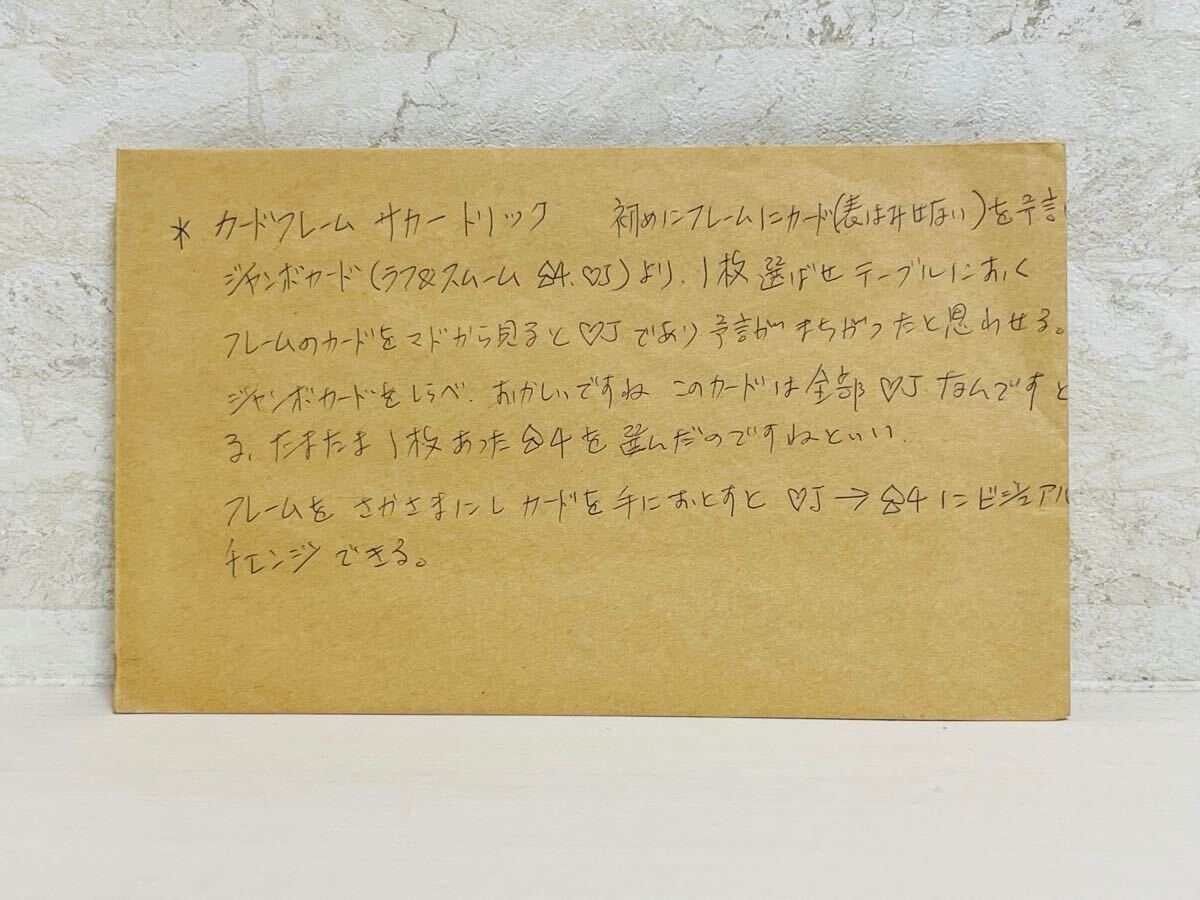 * カードフレーム サカートリック 初めにフレームにカード(表はみせない)を予言
ジャンボカード(ラフ&スムーム ♤4.♡J)より、1枚選ばせテーブルにおく
フレームのカードをマドから見ると♡Jであり予言がまちがったと思わせる。
ジャンボカードをしらべ、おかしいですね このカードは全部♡J.なんですと
る、たまたま1枚あった♤4を選んだのですねといい、
フレームをさかさまにしカードを手におとすと ♡J→♤4にビジュアル
チェンジできる。